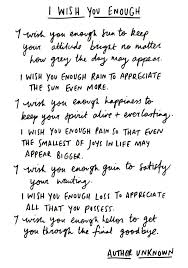 I WISH YOU ENOUGH
I wish you enough sun to keep
your attitude bright no matter
how grey the day may appear.
I WISH YOU ENOUGH RAIN TO APPRECIATE
THE SUN EVEN MORE.
I wish you enough happiness to
keep your spirit alive + everlasting.
I WISH YOU ENOUGH PAIN SO THAT EVEN
THE SMALLEST OF JOYS IN LIFE MAY
APPEAR BIGGER.
I wish you enough gain to satisfy
your wanting.
I WISH YOU ENOUGH LOSS TO APPRECIATE
ALL THAT YOU POSSESS.
I wish you enough hellos to get
you through the final goodbye.
AUTHOR UNKNOWN